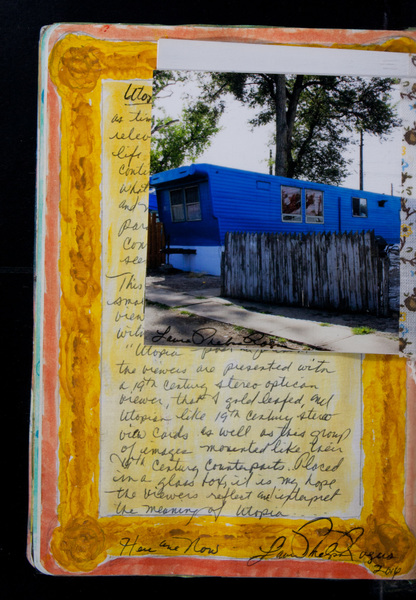 Utop
as tim
relev
life,
conte
what
and
par
con
see
This
smal
view
with
Laura Phelps Rogers
"Utopia
the viewers are presented with
a 19th Century stereo optican
viewer, that I gold leafed, and
Utopian like 19th century stereo
view cards as well as this group
of images mounted like their
19th Century counterparts. Placed
in a glass box, it is my hope
the viewers reflect and interpret
the meaning of Utopia . . .
Here and Now
Laura Phelps Rogers